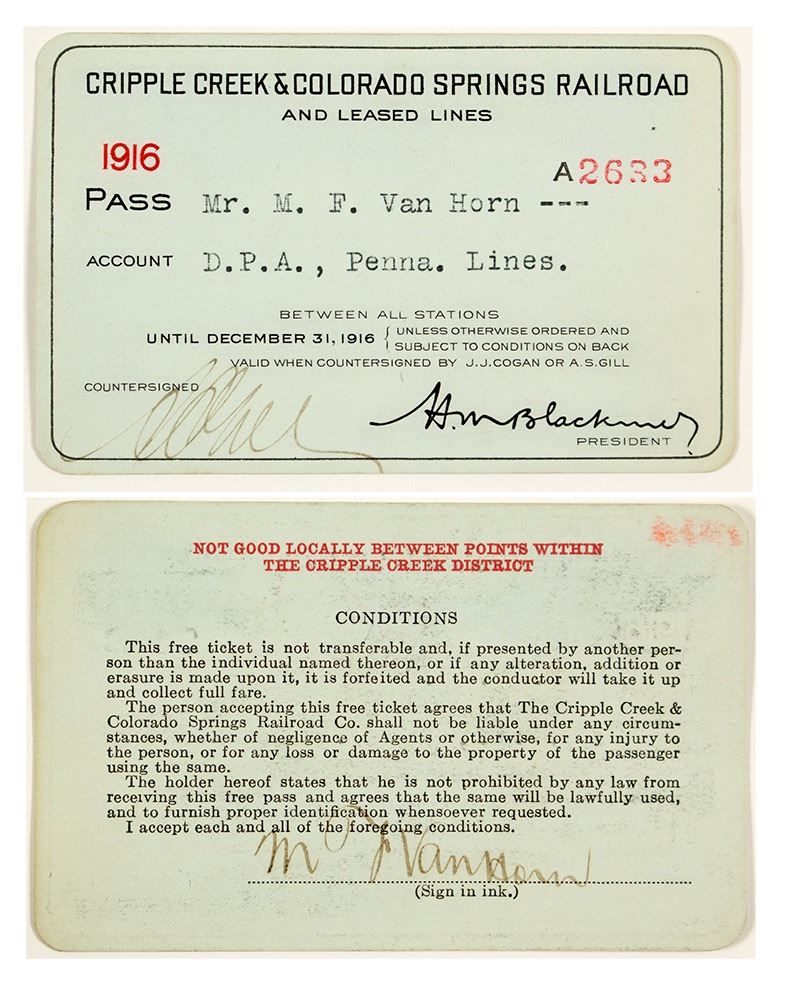 CRIPPLE CREEK & COLORADO SPRINGS RAILROAD
AND LEASED LINES
1916
A2633
PASS Mr. M. F. Van Horn ---
ACCOUNT D.P.A., Penna. Lines.
BETWEEN ALL STATIONS
UNTIL DECEMBER 31, 1916 { UNLESS OTHERWISE ORDERED AND
SUBJECT TO CONDITIONS ON BACK
VALID WHEN COUNTERSIGNED BY J.J.COGAN OR A.S.GILL
COUNTERSIGNED
H.M Blackmer
PRESIDENT
NOT GOOD LOCALLY BETWEEN POINTS WITHIN
THE CRIPPLE CREEK DISTRICT
CONDITIONS
This free ticket is not transferable and, if presented by another per-
son than the individual named thereon, or if any alteration, addition or
erasure is made upon it, it is forfeited and the conductor will take it up
and collect full fare.
The person accepting this free ticket agrees that The Cripple Creek &
Colorado Springs Railroad Co. shall not be liable under any circum-
stances, whether of negligence of Agents or otherwise, for any injury to
the person, or for any loss or damage to the property of the passenger
using the same.
The holder hereof states that he is not prohibited by any law from
receiving this free pass and agrees that the same will be lawfully used,
and to furnish proper identification whensoever requested.
I accept each and all of the foregoing conditions.
M F Van Horn
(Sign in ink.)